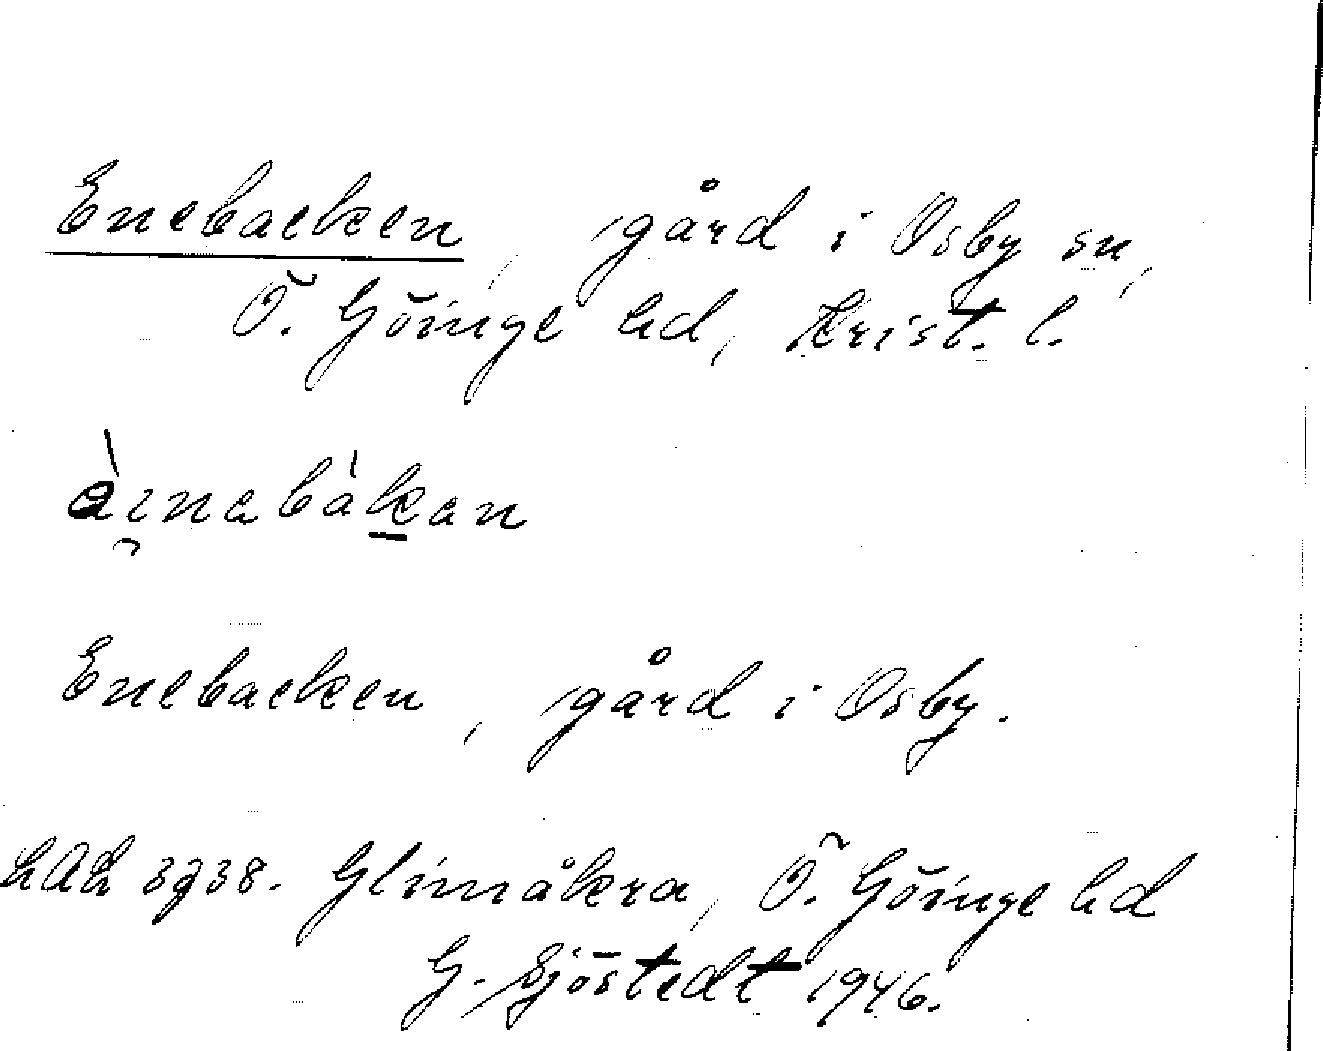 Enebacken, gård i Osby sn,
Ö. Göinge hd, Krist. l.
àinabàkan
Enebacken, gård i Osby.
LAL 3938. Glimåkra, Ö. Göinge hd
G. Sjöstedt 1946.